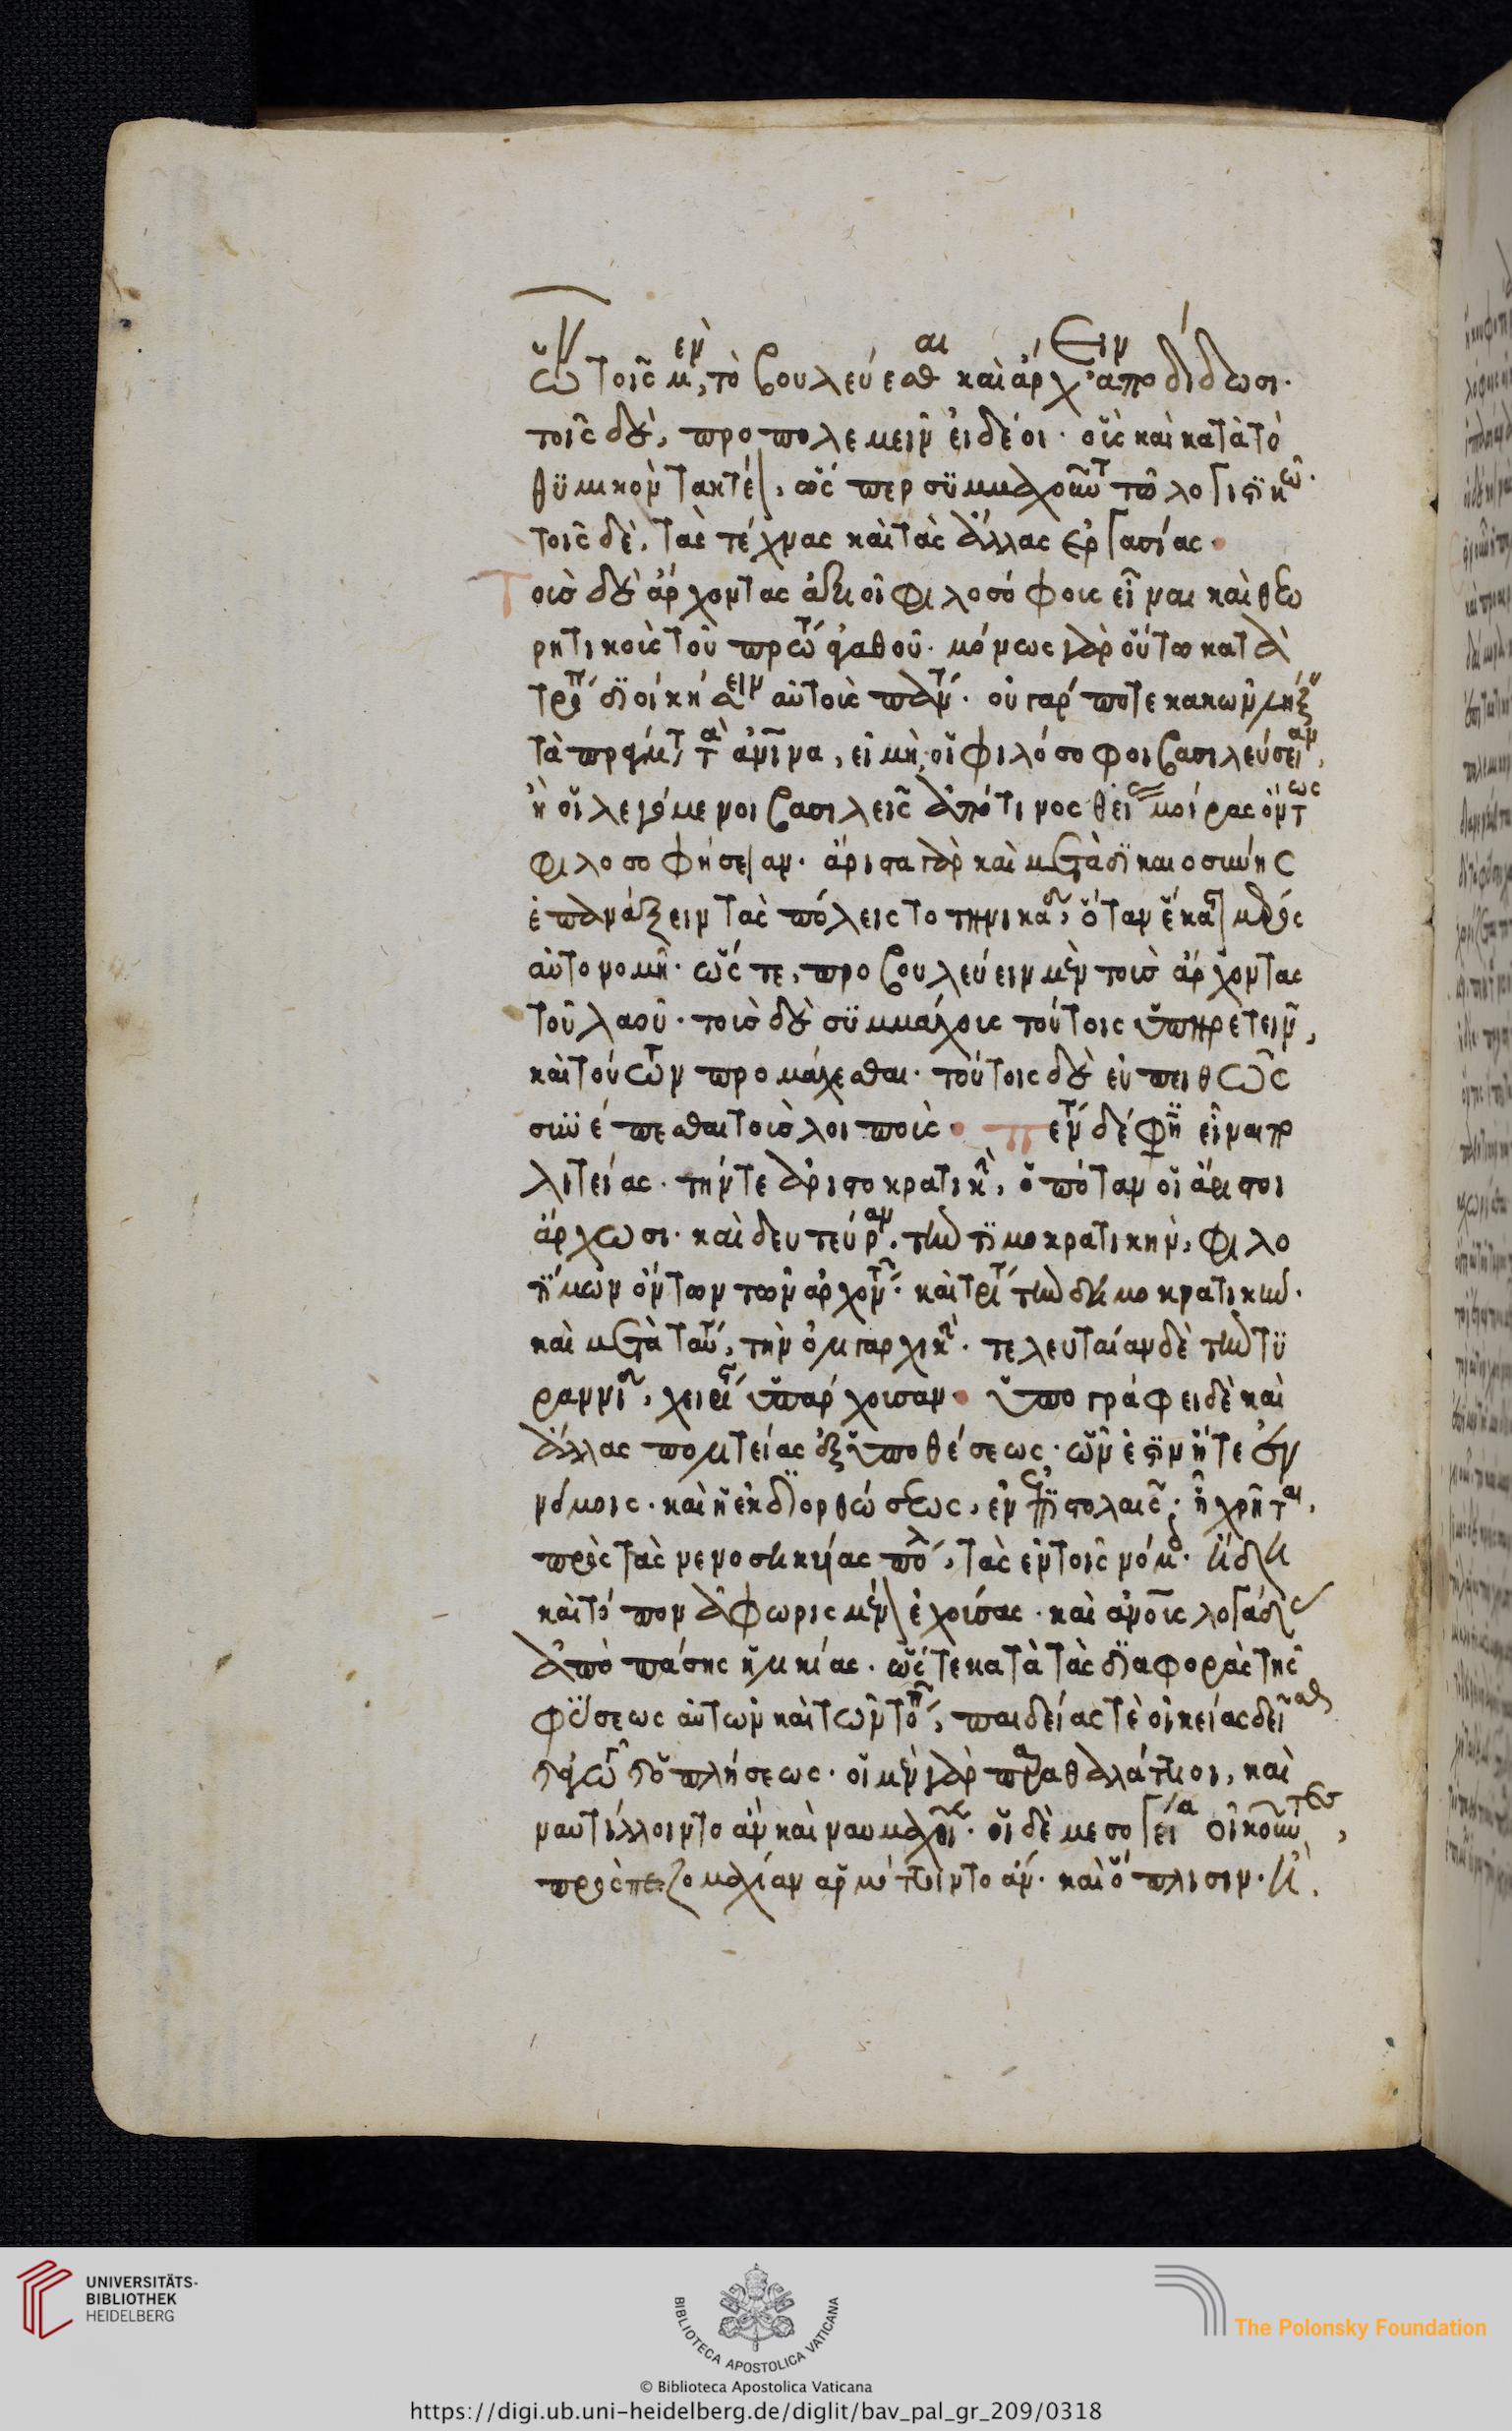 ὧν τοῖς μὲν, τὸ βουλεύεσθαι καὶ ἄρχειν ἀποδίδωσι·
τοῖς δὲ, προπολεμεῖν εἰ δέοι· οὓς καὶ κατὰ τὸ
θυμικὸν τακτέον, ὥσπερ συμμαχοῦντας τῷ λογιστικῷ·
τοῖς δὲ, τὰς τέχνας καὶ τὰς ἄλλας ἐργασίας·
Τοὺς δὲ ἄρχοντας ἀξιοῖ φιλοσόφους εἶναι καὶ θεω
ρητικοὺς τοῦ πρώτου ἀγαθοῦ· μόνως γὰρ οὕτω κατὰ
τρόπον διοικήσειν αὐτοὺς πάντα· οὐ γάρ ποτε κακῶν λήξειν
τὰ πράγματα τὰ ἀνθρώπινα, εἰ μὴ οἱ φιλόσοφοι βασιλεύσειαν,
ἢ οἱ λεγόμενοι βασιλεῖς ἀπό τινος θείας μοίρας ὄντως
φιλοσοφήσειαν· ἄριστα γὰρ καὶ μετὰ δικαιοσύνης
ἐπανάξειν τὰς πόλεις τοτηνικαῦτα, ὅταν ἕκαστον μέρος
αὐτονομῇ· ὥστε, προβουλεύειν μὲν τοὺς ἄρχοντας
τοῦ λαοῦ· τοὺς δὲ συμμάχους τούτοις ὑπηρετεῖν,
καὶ τούτων προμάχεσθαι· τούτοις δὲ εὐπειθῶς
συνέπεσθαι τοὺς λοιπούς· πέντε δέ φησιν εἶναι πο
λιτείας· τήν τε ἀριστοκρατικὴν, ὁπόταν οἱ ἄριστοι
ἄρχωσι· καὶ δευτέραν, τὴν τιμοκρατικὴν, φιλο
τίμων ὄντων τῶν ἀρχόντων· καὶ τρίτην τὴν δημοκρατικήν·
καὶ μετὰ ταύτην, τὴν ὀλιγαρχικὴν· τελευταίαν δὲ τὴν τυ
ραννίδα, χειρίστην ὑπάρχουσαν· Ὑπογράφει δὲ καὶ
ἄλλας πολιτείας ἐξ ὑποθέσεως· ὧν ἐστιν ἥ τε ἐν
νόμοις· καὶ ἡ ἐκ διορθώσεως, ἐν ἐπιστολαῖς· ᾗ χρῆται,
πρὸς τὰς νενοσηκυίας πόλεις, τὰς ἐν τοῖς νόμοις· ἤδη
καὶ τόπον ἀφωρισμένον ἐχούσας· καὶ ἀνθρώπους λογάδας
ἀπὸ πάσης ἡλικίας· ὥστε κατὰ τὰς διαφορὰς τῆς
φύσεως αὐτῶν καὶ τῶν τόπων, παιδείας τὲ οἰκείας δεῖσθαι
διαγωγῆς ὁπλήσεως· οἱ μὲν γὰρ παραθαλάττιοι, καὶ
ναυτίλλοιντο ἂν καὶ ναυμαχοῖεν· οἱ δὲ μεσόγεια οἰκοῦντες,
πρὸς πεζομαχίαν ἁρμόττοιντο ἄν· καὶ ὅπλισιν· ἢ
UNIVERSITÄTS-
BIBLIOTHEK
HEIDELBERG
BIBLIOTECA APOSTOLICA VATICANA
The Polonsky Foundation
© Biblioteca Apostolica Vaticana
https://digi.ub.uni-heidelberg.de/diglit/bav_pal_gr_209/0318